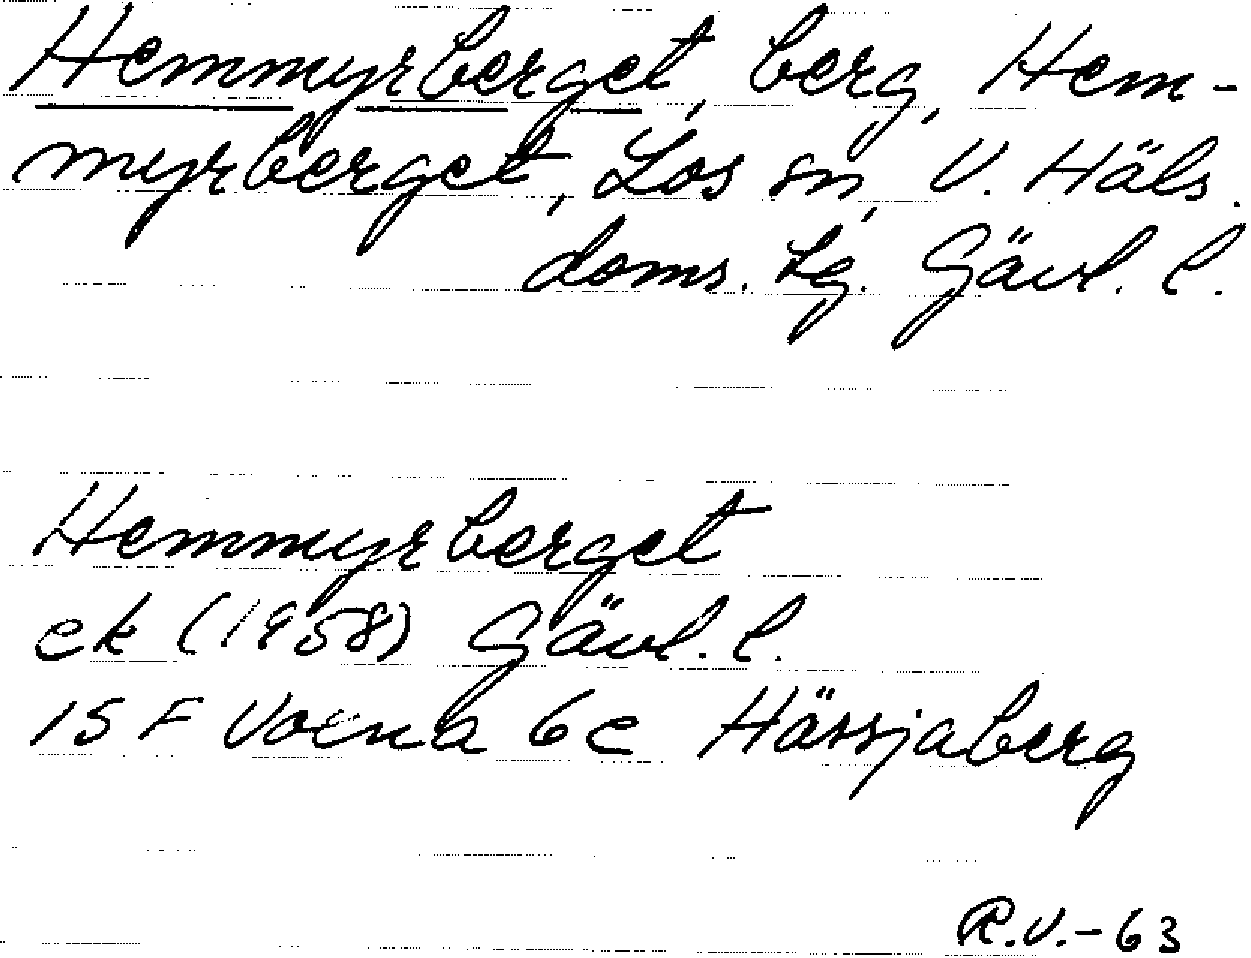 Hemmyrberget, berg, Hem-
myrberget, Los sn, V. Häls.
doms. tg. Gävl. l.
Hemmyrberget
ek (1958) Gävl. l.
15 F Voxna 6c Hässjaberg
R.V.-63